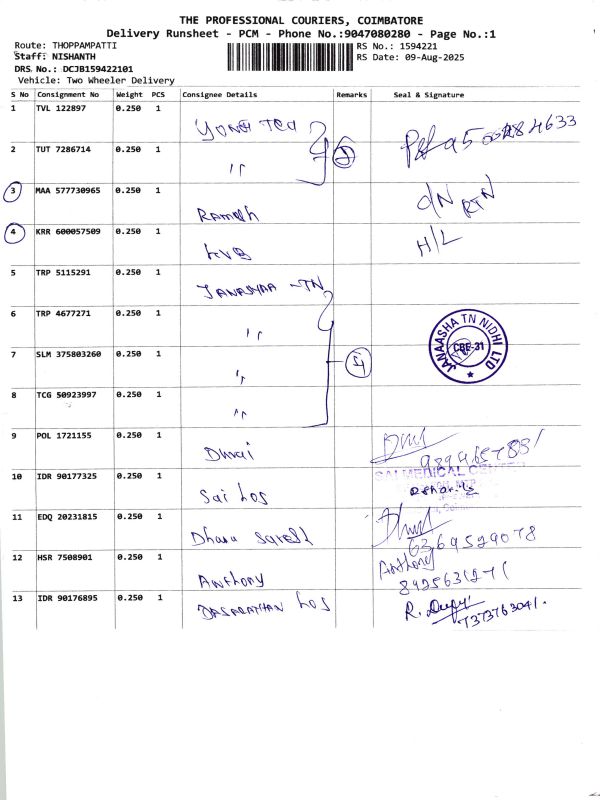 THE PROFESSIONAL COURIERS, COIMBATORE
Delivery Runsheet - PCM - Phone No.:9047080280 - Page No.:1
Route: THOPPAMPATTI RS No.: 1594221
Staff: NISHANTH RS Date: 09-Aug-2025
DRS No.: DCJB159422101
Vehicle: Two Wheeler Delivery
S No Consignment No Weight PCS Consignee Details Remarks Seal & Signature
1 TVL 122897 0.250 1
2 TUT 7286714 0.250 1 "
3 MAA 577730965 0.250 1 Ramesh D/N RTN
4 KRR 600057509 0.250 1 KVB H/L
5 TRP 5115291 0.250 1 - TN
6 TRP 4677271 0.250 1 "
7 SLM 375803260 0.250 1 " JANAASHA TN NIDHI LTD CBE-31
8 TCG 50923997 0.250 1 "
9 POL 1721155 0.250 1
10 IDR 90177325 0.250 1 Sai Hos MEDICAL
11 EDQ 20231815 0.250 1 6369529078
12 HSR 7508901 0.250 1 Anthony Anthony
8925631271
13 IDR 90176895 0.250 1 DASARATHAN Hos R.
7373763041.